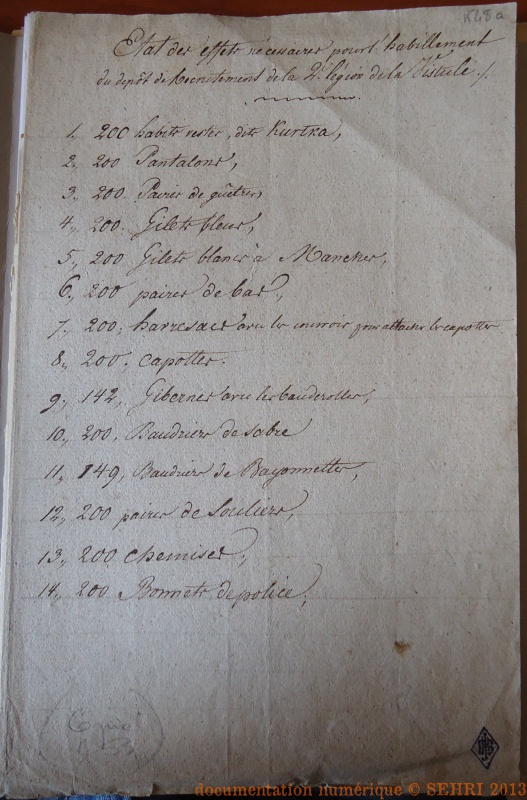 K48a
Etat des effets nécessaires pour l'habillement
du depôt de Recrutement de la 2e légion de la Vistule ./.
1. 200 habits vestes, dits Kurtka,
2., 200 Pantalons,
3., 200. Paires de guêtres,
4., 200. Gilets bleus,
5., 200 Gilets blancs à Manches,
6., 200 paires de bas.,
7., 200, havresacs avec les courrois pour attacher les capottes
8., 200. capottes.
9., 142, Gibernes avec les banderolles,
10., 200. Baudriers de sabre
11., 149, Baudriers de Bayonnettes,
12., 200 paires de Souliers,
13., 200 chemises,
14., 200 Bonnets de police,
documentation numérique © SEHRI 2013